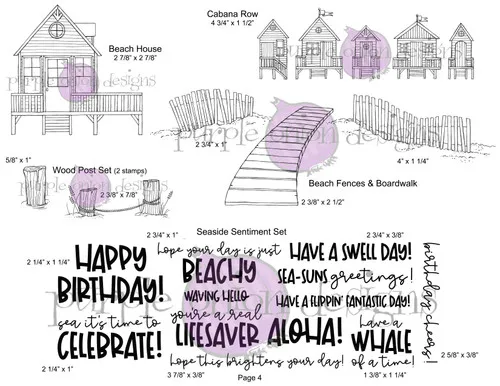 Cabana Row
4 3/4" x 1 1/2"
Beach House
2 7/8" x 2 7/8"
purple onion designs
5/8" x 1"
Wood Post Set (2 stamps)
2 3/8" x 7/8"
2 3/4" x 1"
4" x 1 1/4"
Beach Fences & Boardwalk
2 3/8" x 2 1/2"
Seaside Sentiment Set
2 3/4" x 1"
2 3/4" x 3/8"
2 1/4" x 1 1/4"
HAPPY
BIRTHDAY!
sea it's time to
CELEBRATE!
2 1/4" x 1"
hope your day is just
BEACHY
WAVING HELLO
you're a real
LIFESAVER
hope this brightens your day!
3 7/8" x 3/8"
HAVE A SWELL DAY!
SEA-SUNS greetings!
HAVE A FLIPPIN' FANTASTIC DAY!
ALOHA!
have a
WHALE
of a time!
1 3/8" x 1 1/4"
birthday cheers!
2 5/8" x 3/8"
Page 4